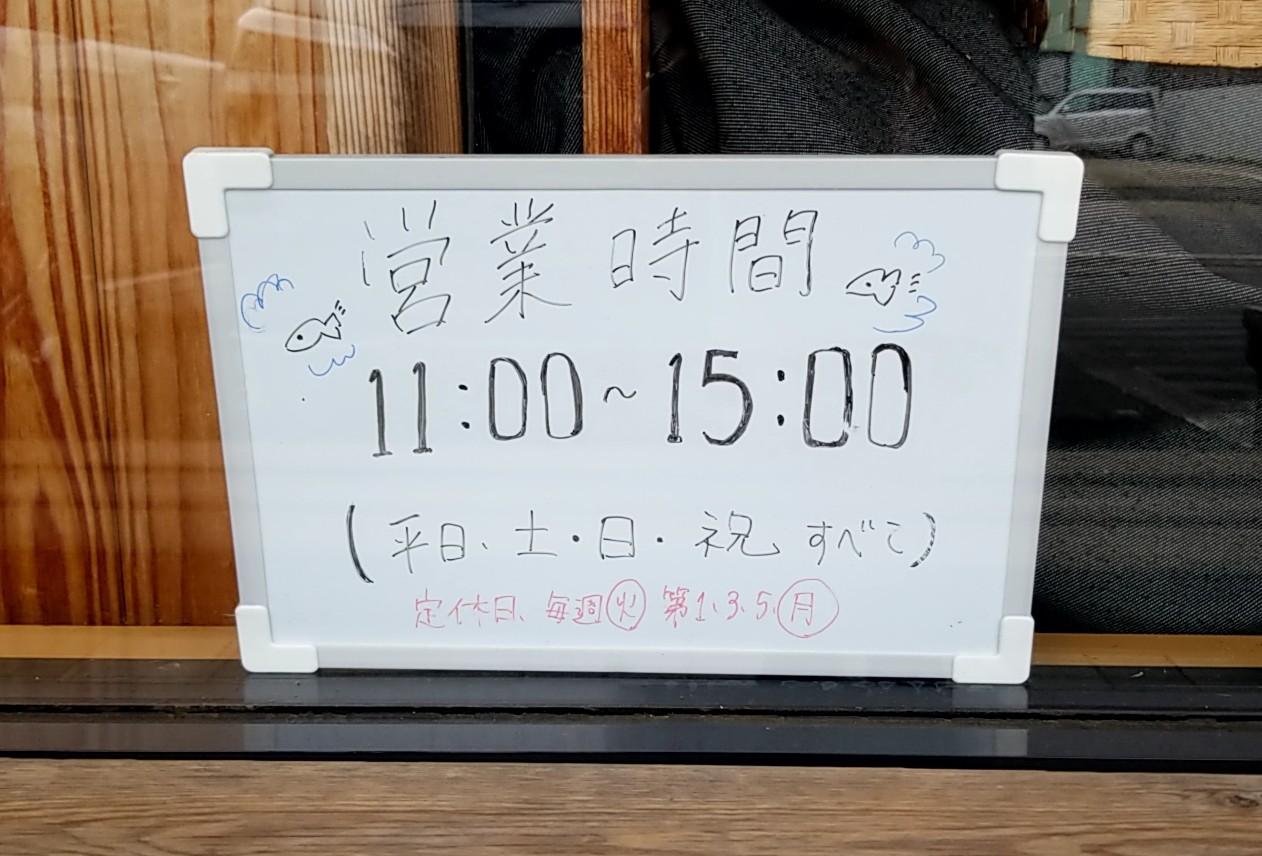 営業時間
11:00~15:00
(平日、土・日・祝、すべて)
定休日、毎週㊋ 第1、3、5、㊊